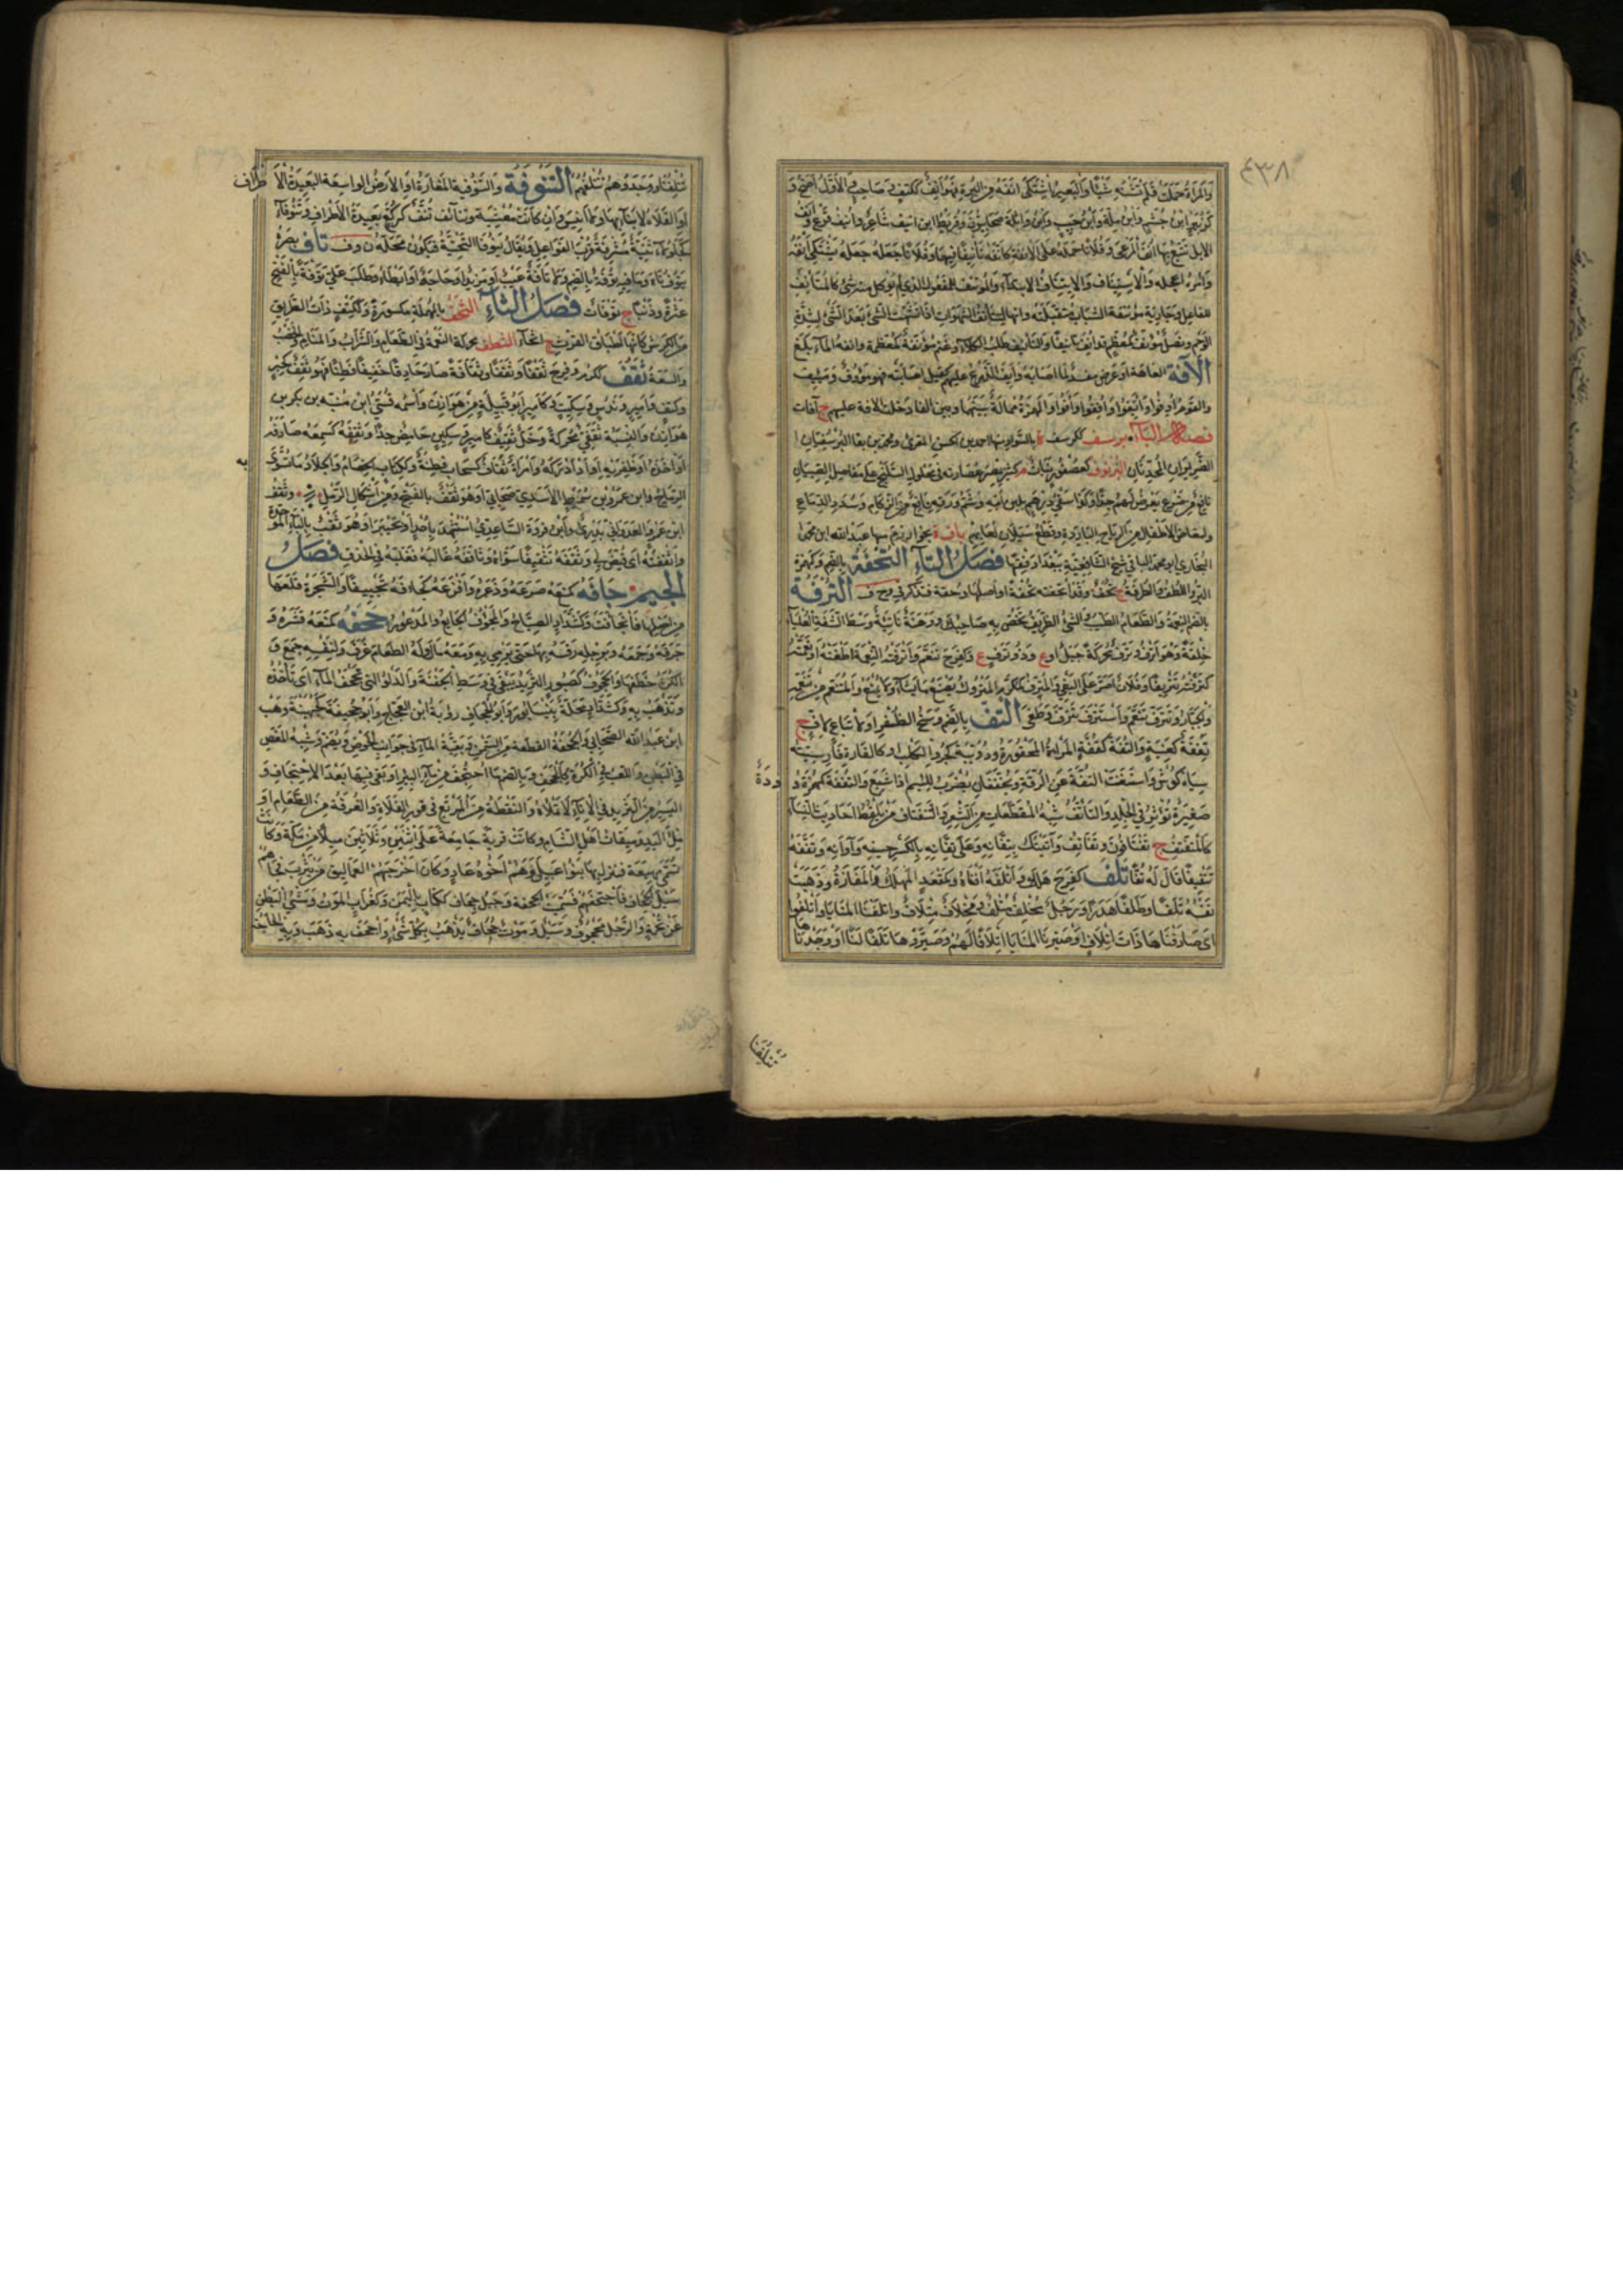 ٤٣٨
والمرأة حملت فلم تشته شيئا والبعير اشتكى انفه من البرة فهو انف ككتف وصاحب والأول أصح و
كزبير ابن جشم وابن ملة وابن حبيب وابن واثلة صحابيون وقريط ابن انيف شاعر وانيف فرع وانف
الابل تتبع بها انف المرعى وفلانا حمله على الانفة كأنفه تأنيفا فيهما وفلانا جعله يشتكي انفه
وامره اعجله والاستيناف والايتناف الابتداء والمؤتنف للمفعول الذي لم يؤكل منه شئ كالمتأنف
للفاعل وجارية مؤتنفة الشباب مقتبلته وانها لتتأنف الشهوات اذا تشهت الشئ بعد الشئ لشدة
الوحم ونصل مؤنف كمعظم قد انف تأنيفا والتأنيف طلب الكلاء وغنم مؤنفة كمعظمة وانفه الماء بلغ
الآفة العاهة او عرض مفسد لما اصابه وايف الزرع كقيل اصابته فهو مؤوف ومئيف
والقوم اوفوا وايفوا وافوا والهمزة ممالة بينها وبين الفاء دخلت الافة عليهم ج آفات
فصل الباء برسف ككرسف ة بالسواد منها احمد بن الحسن المقرئ ومحمد بن بقاء البرسفيان
الضريران المحدثان البرنوف كعصفور نبات م كثير بمصر عصارته في على مفاصل الصبيان
نافع من يعرض لهم جدا وكذا سقي درهم بلبن امه وشم ورقه نافع من الزكام وسدد الدماغ
ولمغاص الاطفال من الرياح الباردة وقطع سيلان لعابهم بافة ة بخوارزم منها عبد الله ابن محمد
البخاري ابو محمد البافي شيخ الشافعية ببغداد وفقيهها فصل التاء التحفة بالضم وكهمزة
البر واللطف والطرفة ج تحف وقد اتحفته تحفة او اصلها وحفة فتذكر في وح ف الترفة
بالضم النعمة والطعام الطيب والشئ الظريف تخص به صاحبك وهنة ناتية وسط الشفة العليا
خلقة وهو اترف وترف محركة جبل او ع وذو ترف ع وكفرح تنعم واترفته النعمة اطغته او نعمته
كترفته تتريفا وفلان اصر على البغي والمترف كمكرم المتروك يصنع ما يشاء ولا يمنع والمتنعم من تنعمه
والجبار وتترف تنعم واستترف تغترف وطغى التف بالضم وسخ الظفر او اتباع لاف ج
تففة كعنبة والتفة كقفة المرأة المحقورة ودويبة كجرو الكلب او كالفارة فارسيته
سياه كوش واستغنت التفة عن الرفة ويخففان يضرب للئيم اذا شبع والتففة كهمزة دودة
صغيرة تؤثر في الجلد والتأتف شبه المقطعات من الشعر والتفتاف من يلتقط احاديث النساء
كالمتفتف ج تفتافون وتفاتف واتيتك بتفانه وعلى تفانه بالكسر حينه واوانه وتففه
تتفيفا قال له تفا تلف كفرح هلك واتلفه افناه وكمقعد المهلك والمفازة وذهبت
نفسه تلفا وطلفا هدرا ورجل مخلف متلف ومخلاف متلاف واتلفنا المنايا واتلفوها
اي صادفناها ذات اتلاف او صيرنا المنايا اتلافا لهم وصيروها تلفا لنا او وجدناها
تتلفنا
تتلفنا ووجدوها تتلفهم التنوفة والتنوفية المفازة او الارض الواسعة البعيدة الاطراف
او الفلاة لا ماء بها ولا انيس وان كانت معشبة وتنائف تنف كركع بعيدة الاطراف وتنوفى
كجلولاء ثنية مشرفة قرب القواعل ويقال ينوفا التحتية فيكون محله ن وف تاف بصره
يتوف تاه وما فيه توفة بالضم ولا تافة عيب او مزيد او حاجة او ابطاء وطلب على توفة بالفتح
عثرة وذنبا ج توفات فصل الثاء الثحف بالمهملة مكسورة وككتف ذات الطرائق
من الكرش كانها اطباق الفرث ج اثحاف الثطف محركة النعمة في الطعام والشراب والمنام والخصب
والسعة ثقف ككرم وفرح ثقفا وثقفا وثقافة صار حاذقا خفيفا فطنا فهو ثقف كحبر
وكتف وامير وندس وسكيت وكامير ابو قبيلة من هوازن واسمه قسي ابن منبه بن بكر بن
هوازن والنسبة ثقفي محركة وخل ثقيف كامير وسكين حامض جدا وثقفه كسمعه صادفه
او اخذه او ظفر به او ادركه وامرأة ثقاف كسحاب فطنة وككتاب الخصام والجلاد وما تسوى به
الرماح وابن عمرو بن شميط الاسدي صحابي او هو ثقف بالفتح ومن اشكال الرمل وثقف
ابن عمرو العدواني بدري وابن فروة الساعدي استشهد باحد او خيبر او هو ثقب بالباء الموحدة
واثقفته اي قيض لي وثقفه تثقيفا سواه وثاقفه غالبه فغلبه في الحذق فصل
الجيم جأفه كمنعه صرعه وذعره وافزعه كجأفه تجييفا والشجرة قلعها
من اصلها فانجأفت وكشداد الصياح والمجؤوف الجائع والمذعور جحفه كمنعه قشره و
جرفه وجمعه وبرجله رفسه بها حتى يرمي به ومعه مال وله الطعام غرف ولنفسه جمع و
الكرة خطفها والجحوف كصبور الثريد يبقى في وسط الجفنة والدلو التي تجحف الماء اي تأخذه
وتذهب به وكشداد محلة بنيسابور وابو الجحاف رؤبة ابن العجاج وابو جحيفة كجهينة وهب
ابن عبد الله الصحابي والجحفة القطعة من السمن وبقية الماء في جوانب الحوض ويضم وشبه المغص
في البطن واللعب بالكرة كالجحف وبالضم ما اجتحف من ماء البئر او بقي فيها بعد الاجتحاف و
اليسير من الثريد في الاناء لا يملأه والنقطة من المرتع في قوز الفلاة والغرفة من الطعام او
ملء اليد وميقات اهل الشام وكانت قرية جامعة على اثنين وثلاثين ميلا من مكة وكانت
تسمى مهيعة فنزل بها بنو عبيل وهم اخوة عاد وكان اخرجهم العماليق من يثرب فجاءهم
سيل الجحاف فاجتحفهم فسميت الجحفة وجبل جحاف ككتاب باليمن وكغراب الموت ومشي البطن
عن تخمة والرجل مجحوف وسيل وموت جحاف يذهب بكل شئ واجحف به ذهب وبه الحاجة